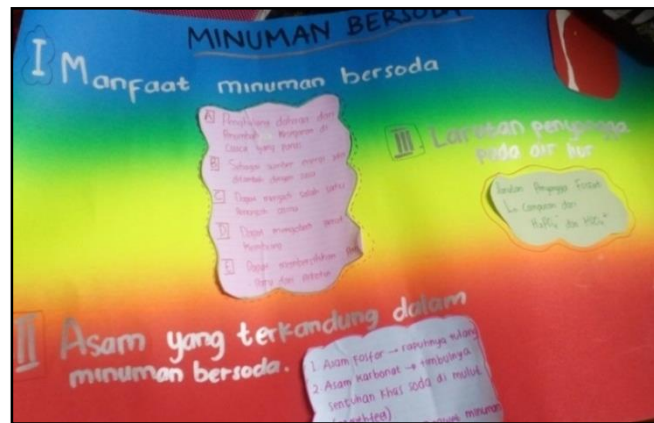 MINUMAN BERSODA
I Manfaat minuman bersoda
A Penghilang dahaga dan
Penambah kesegaran di
cuaca yang panas
B Sebagai sumber energi jika
ditambah dengan susu
C Dapat menjadi salah satu
D Dapat
E Dapat membersihkan
dan
III. Larutan penyangga
pada air
Larutan Penyangga Fosfat
↳ Campuran dari
H₂PO₄⁻ dan HPO₄²⁻
II Asam yang terkandung dalam
minuman bersoda.
1. Asam fosfor → rapuhnya tulang
2. Asam karbonat → timbulnya
sentuhan khas soda di mulut
minuman